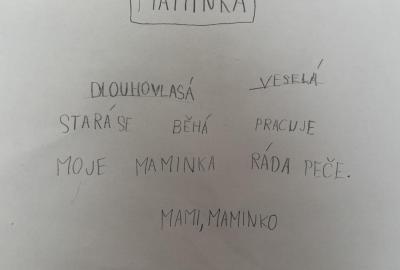 MAMINKA
DLOUHOVLASÁ VESELÁ
STARÁ SE BĚHÁ PRACUJE
MOJE MAMINKA RÁDA PEČE.
MAMI, MAMINKO